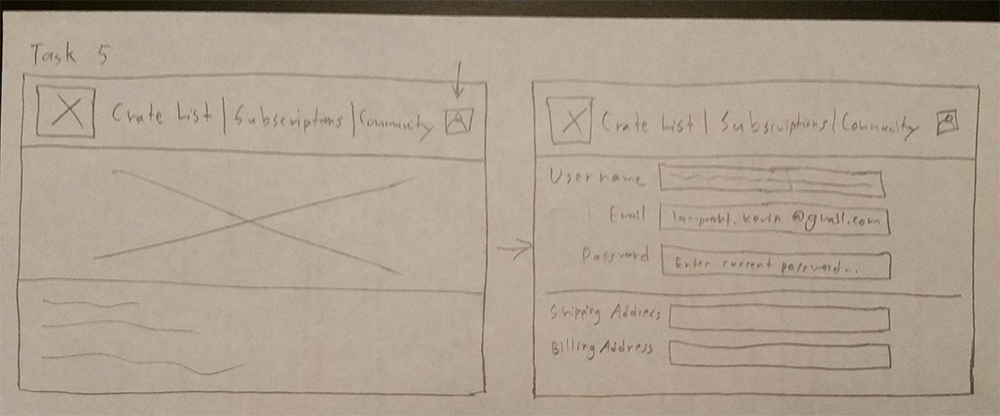 Task 5
Crate List | Subscriptions | Community
Crate List | Subscriptions | Community
Username
Email @gmail.com
Password Enter current password...
Shipping Address
Billing Address